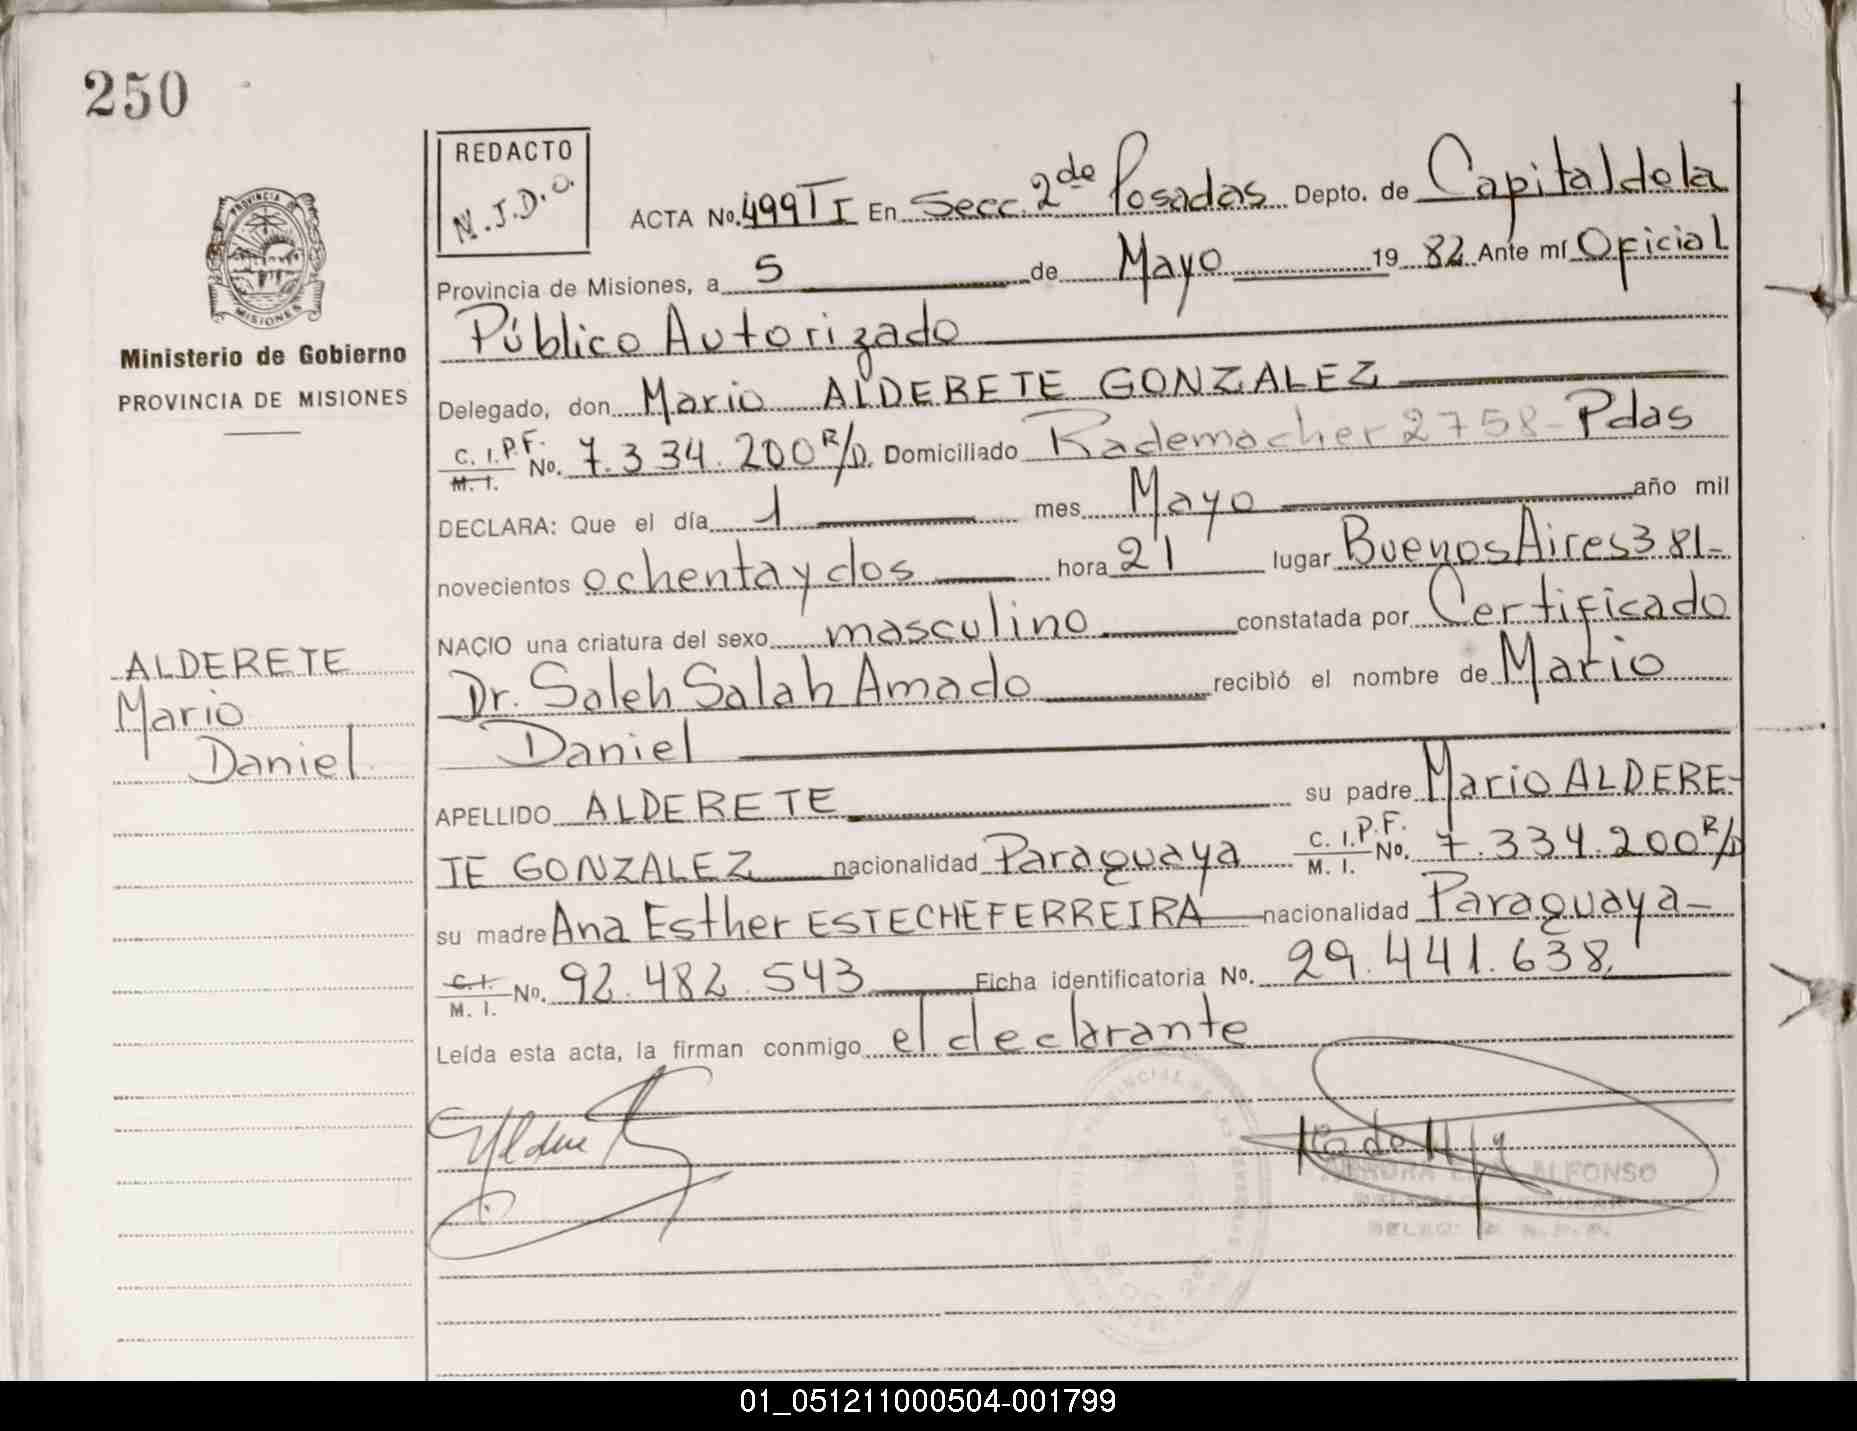 250
REDACTO
N.J.D.O.
ACTA No. 499 TI En Secc. 2de Posadas Depto. de Capital de la
Provincia de Misiones, a 5 de Mayo 19 82 Ante mí Oficial
Público Autorizado
Delegado, don Mario ALDERETE GONZALEZ
C. I. P.F. M. I. No. 7.334.200 R/D. Domiciliado Rademacher 2758 - Pdas
DECLARA: Que el día 1 mes Mayo año mil
novecientos ochenta y dos hora 21 lugar Buenos Aires 381-
NACIO una criatura del sexo masculino constatada por Certificado
Dr. Saleh Salah Amado recibió el nombre de Mario
Daniel
APELLIDO ALDERETE su padre Mario ALDERE-
TE GONZALEZ nacionalidad Paraguaya C. I. P.F. M. I. No. 7.334.200 R/D
su madre Ana Esther ESTECHE FERREIRA nacionalidad Paraguaya-
C. I. M. I. No. 92.482.543 Ficha identificatoria No. 29.441.638
Leída esta acta, la firman conmigo el declarante
ALFONSO
PROVINCIA DE
MISIONES
Ministerio de Gobierno
PROVINCIA DE MISIONES
ALDERETE
Mario
Daniel
01_051211000504-001799